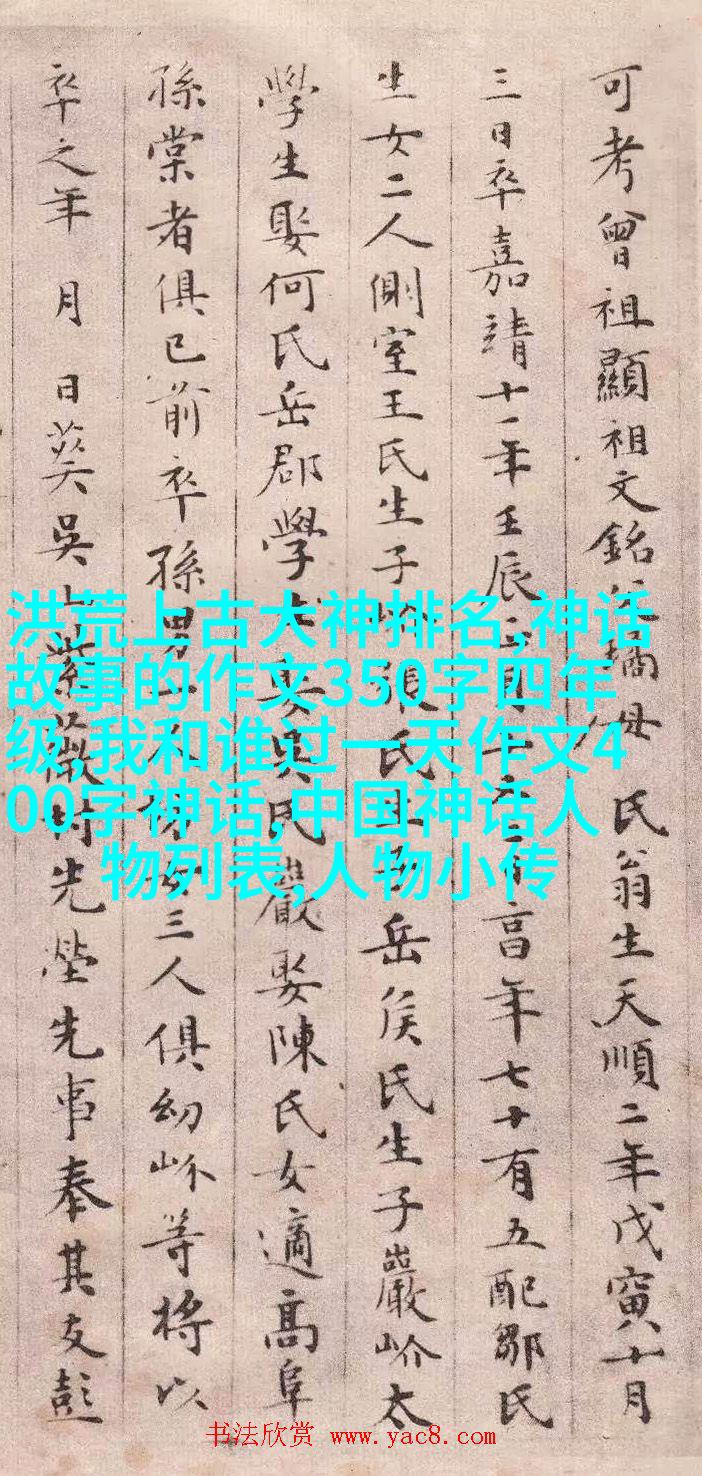 可考曾祖顯祖文銘母 氏翁生天順二年戊寅十月
三日卒嘉靖十一年壬辰月十享年七十有五配鄒氏
生女二人側室王氏生子張氏生子岳侯氏生子巖岎太
學生娶何氏岳郡學生娶吳氏巖娶陳氏女適高阜
孫棠者俱已前卒孫男女三人俱幼岎等將以
卒之年 月 日葬吳山紫薇村先塋先事奉其友彭
洪荒上古大神排名,神话
故事的作文350字四年
级,我和谁过一天作文4
00字神话,中国神话人
物列表,人物小传
书法欣赏 www.yac8.com